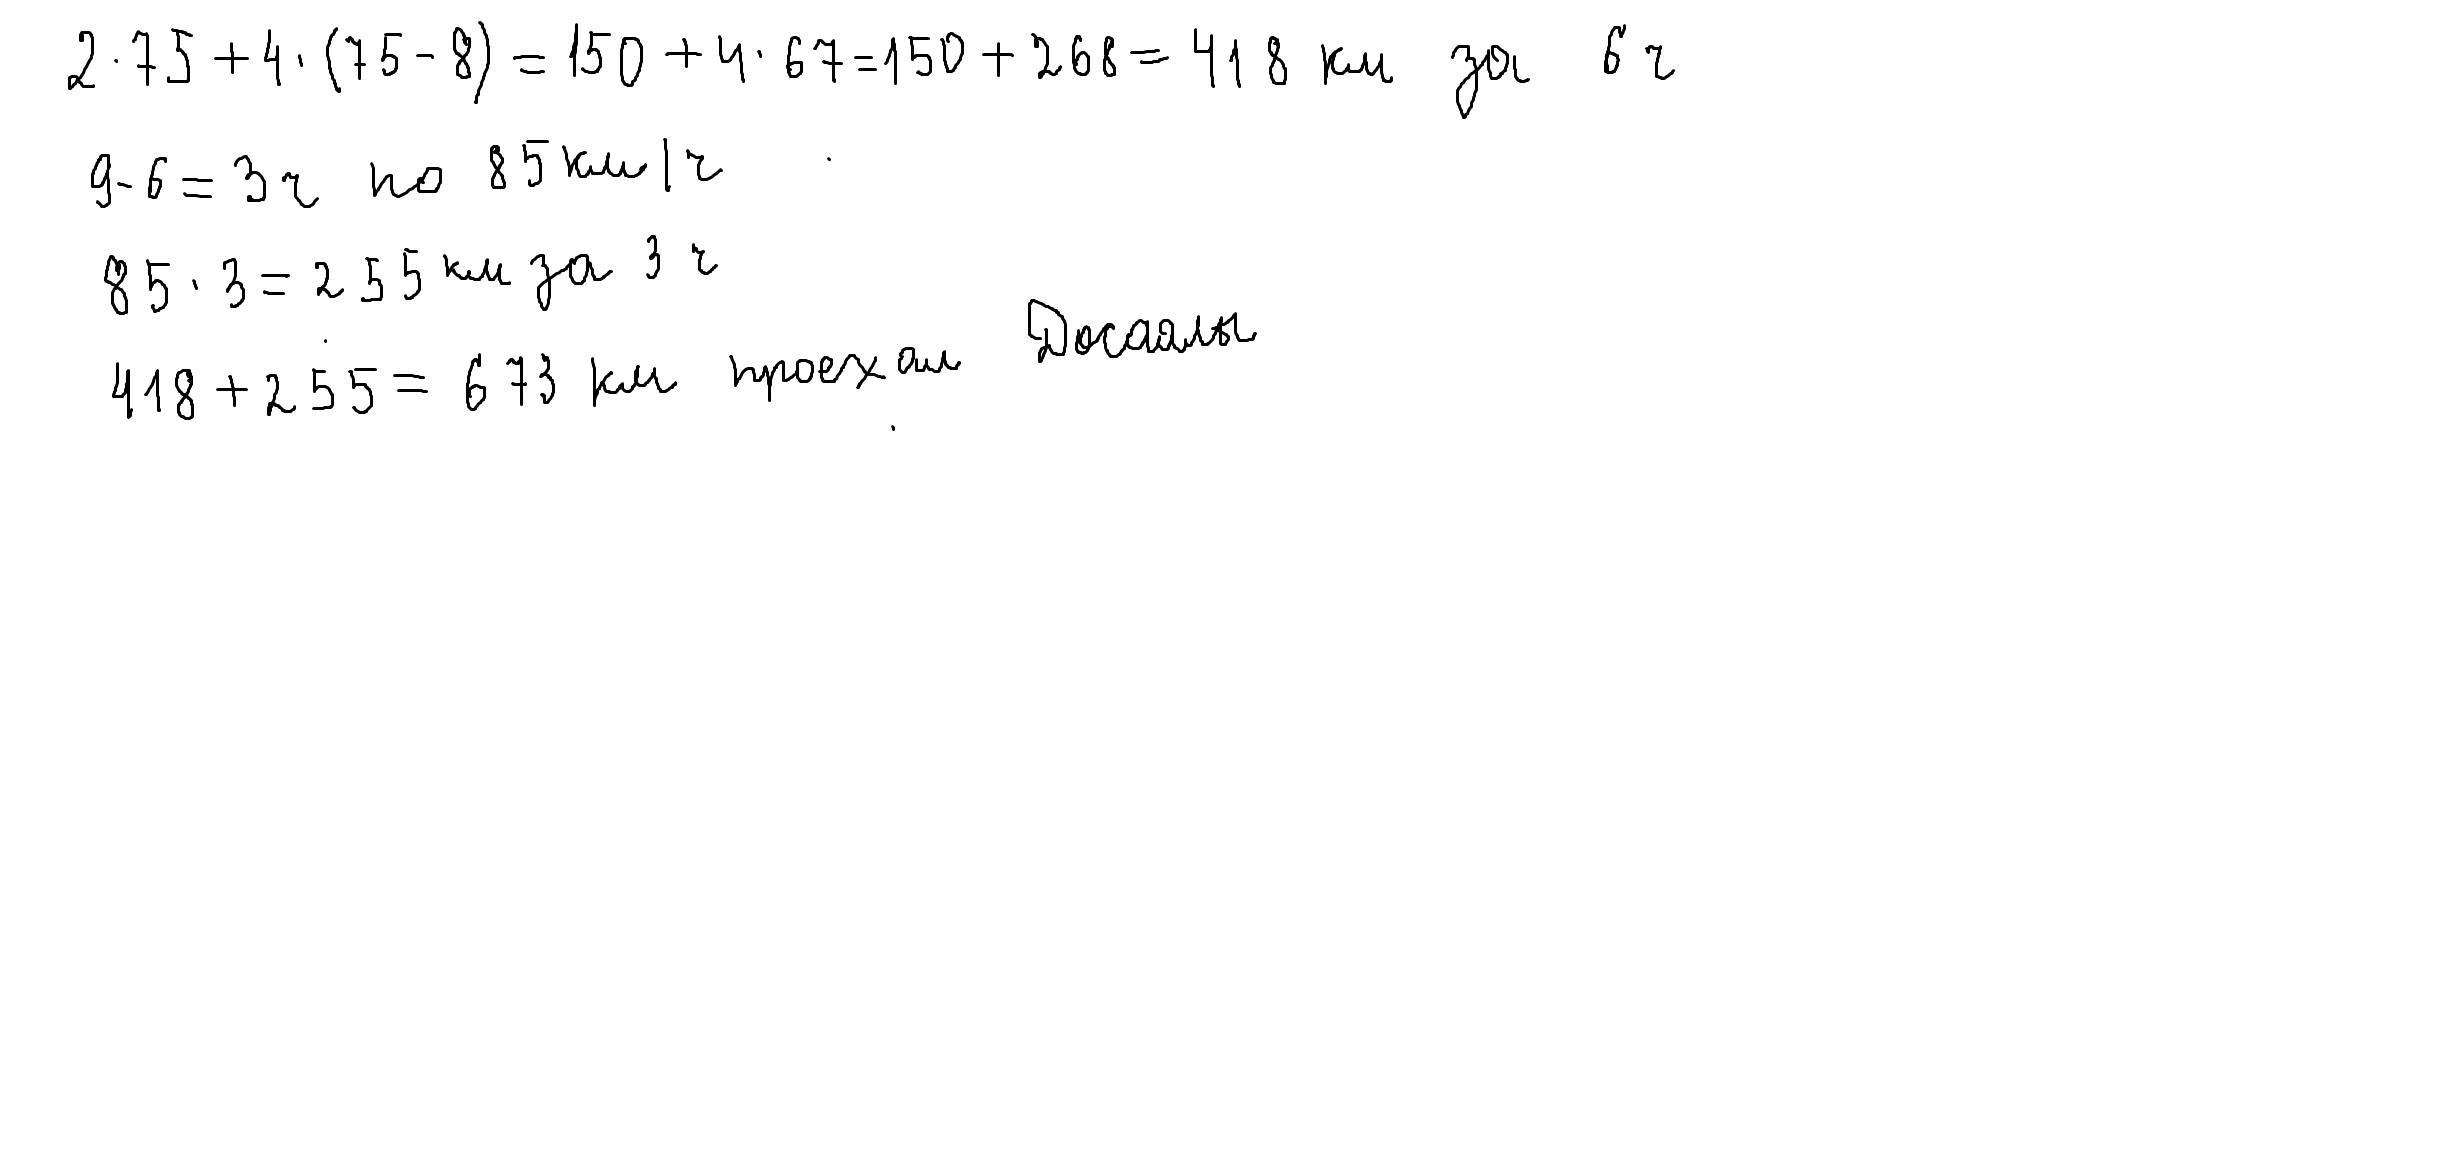 2·75+4·(75-8)=150+4·67=150+268=418 км за 6ч
9-6=3ч по 85км/ч
85·3=255км за 3ч
418+255=673км проехал Досаалы